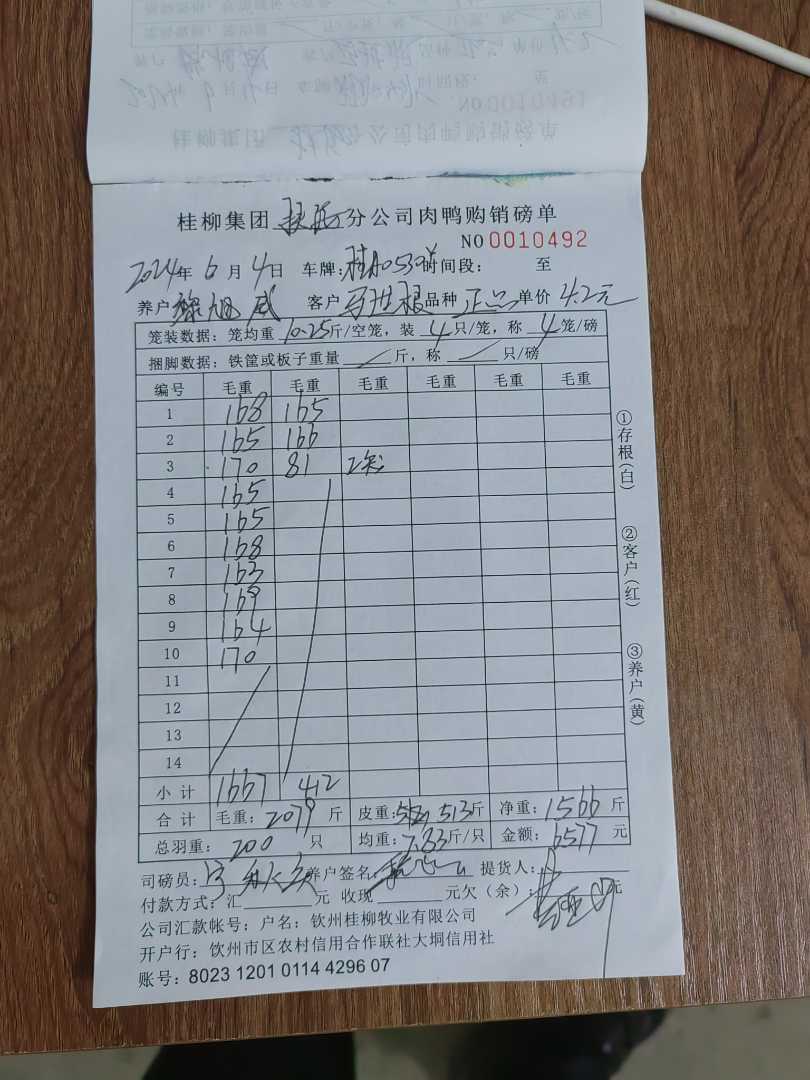 桂柳集团 分公司肉鸭购销磅单
NO 0010492
2024年6月4日 车牌: 桂A0530 时间段: 至
养户 客户 马世根 品种 正品 单价 4.2元
笼装数据: 笼均重 10.25斤/空笼, 装 4只/笼, 称 4笼/磅
捆脚数据: 铁筐或板子重量 斤, 称 只/磅
编号 毛重 毛重 毛重 毛重 毛重 毛重
1 168 165
2 165 166
3 170 81 2笼
4 165
5 165
6 168
7 163
8 169
9 164
10 170
11
12
13
14
小计 1667 412
合计 毛重: 2079 斤 皮重: 513斤 净重: 1566 斤
总羽重: 200 只 均重: 7.83斤/只 金额: 6577 元
司磅员: 养户签名: 提货人:
付款方式: 汇 元 收现 元欠(余): 元
公司汇款帐号: 户名: 钦州桂柳牧业有限公司
开户行: 钦州市区农村信用合作联社大垌信用社
账号: 8023 1201 0114 4296 07
①存根(白)
②客户(红)
③养户(黄)